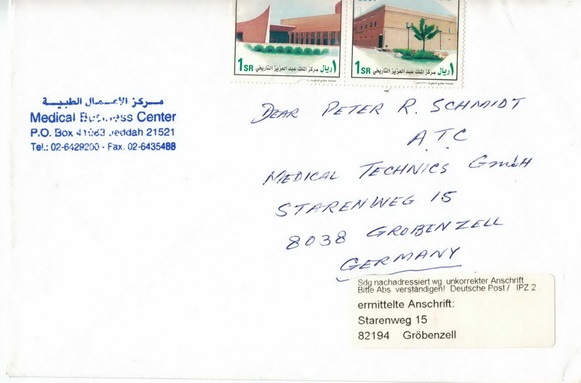 1 ريال 1 SR مركز الملك عبد العزيز التاريخي
1 ريال 1 SR مركز الملك عبد العزيز التاريخي
مركز الأعمال الطبية
Medical Business Center
P.O. Box 41063 Jeddah 21521
Tel.: 02-6429200 - Fax. 02-6435488
DEAR PETER R. SCHMIDT
A.T.C
MEDICAL TECHNICS GmbH
STARENWEG 15
8038 GROBENZELL
GERMANY
Sdg nachadressiert wg. unkorrekter Anschrift
Bitte Abs. verständigen! Deutsche Post / IPZ 2
ermittelte Anschrift:
Starenweg 15
82194 Gröbenzell